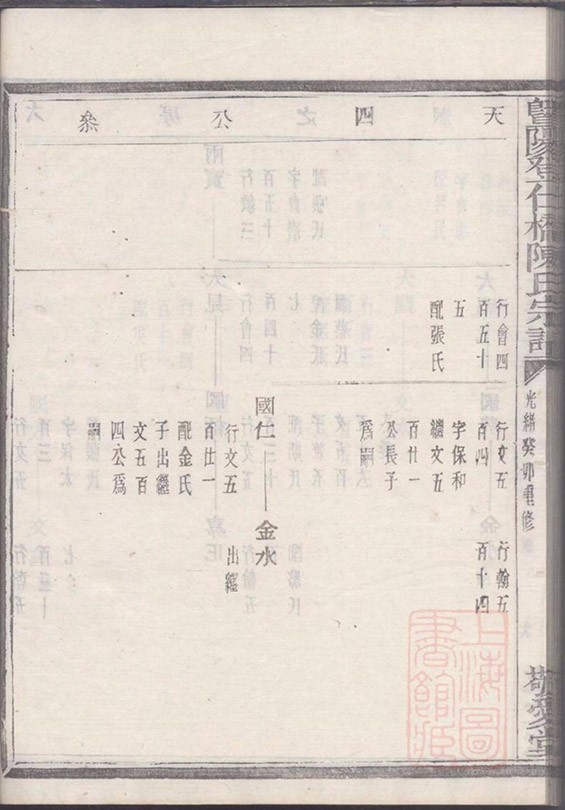 暨陽登仁橋陳氏宗譜
光緒癸卯重修
敬愛堂
天四公叅
行會四
百五十
五
配張氏
行文五
百四
字保和
繼文五
百廿一
公長子
爲嗣
行翰五
百十四
國仁
金水
行文五
百廿一
配金氏
子出繼
文五百
四公爲
嗣
出繼
上海圖書館藏